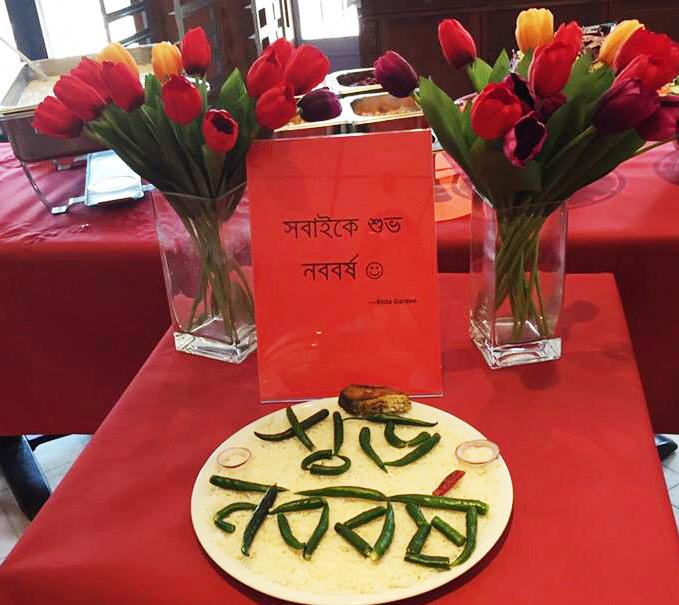 সবাইকে শুভ
নববর্ষ ☺
----Rista Garden
শুভ
নববর্ষ